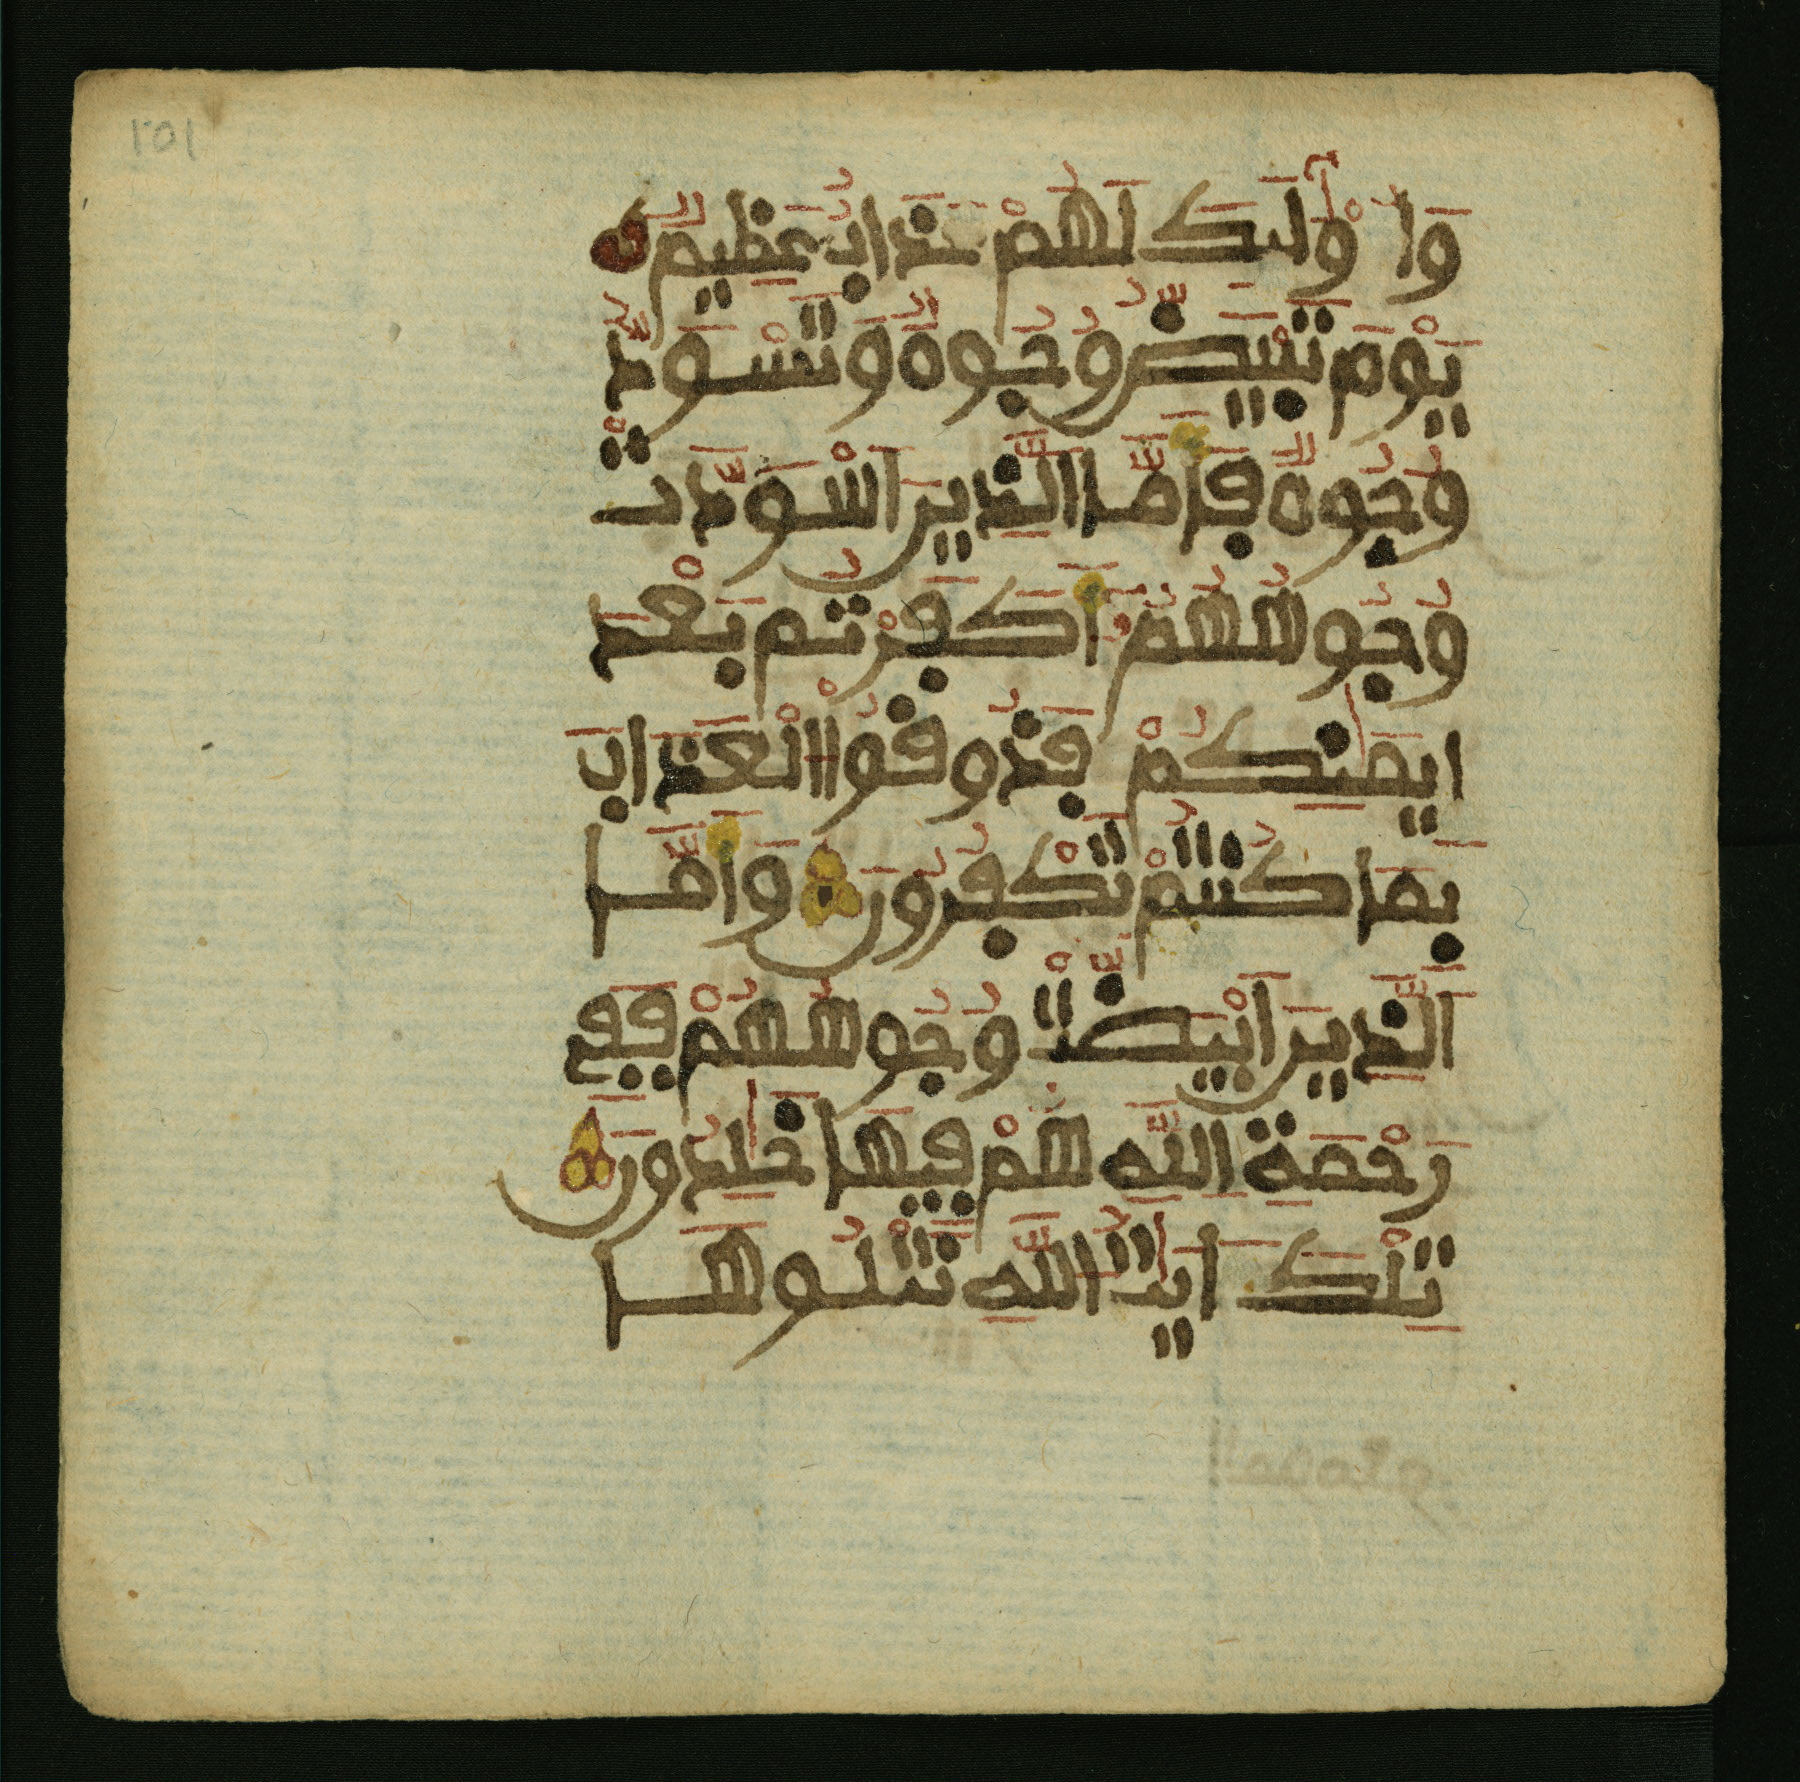 ١٥١
وَأُوْلَٰئِكَ لَهُمْ عَذَابٌ عَظِيمٌ
يَوْمَ تَبْيَضُّ وُجُوهٌ وَتَسْوَدُّ
وُجُوهٌ فَأَمَّا الَّذِينَ اسْوَدَّتْ
وُجُوهُهُمْ أَكَفَرْتُم بَعْدَ
إِيمَٰنِكُمْ فَذُوقُواْ الْعَذَابَ
بِمَا كُنتُمْ تَكْفُرُونَ وَأَمَّا
الَّذِينَ ابْيَضَّتْ وُجُوهُهُمْ فَفِي
رَحْمَةِ اللَّهِ هُمْ فِيهَا خَٰلِدُونَ
تِلْكَ ءَايَٰتُ اللَّهِ نَتْلُوهَا